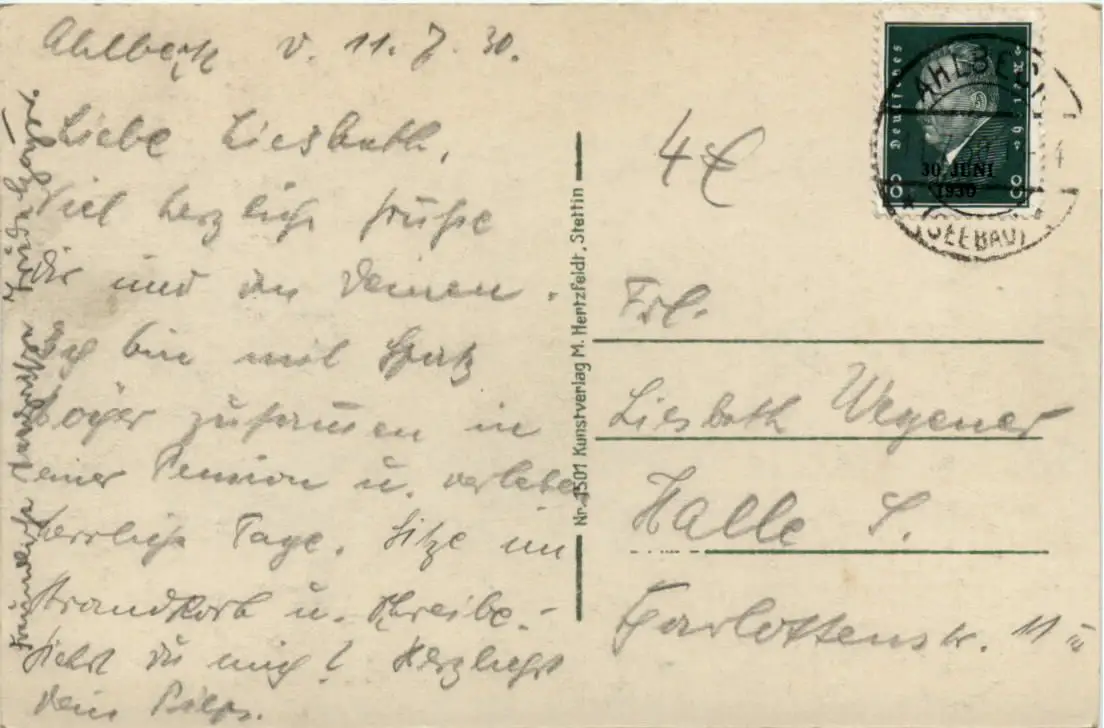 Ahlbeck v. 11.7.30.
Liebe Liesbeth,
Viel herzliche Grüße
dir und den Deinen.
Ich bin mit
zusammen in
einer Pension u. verlebe
herrliche Tage. Sitze im
Strandkorb u. schreibe.-
Siehst du mich? Herzlichst
dein
Freundliche
Nr. 1501 Kunstverlag M. Hertzfeldt, Stettin
4€
Deutsches Reich
8 8
30. JUNI
1930
AHLBECK
(SEEBAD)
Frl.
Liesbeth Wegener
Halle S.
Charlottenstr. 11 II